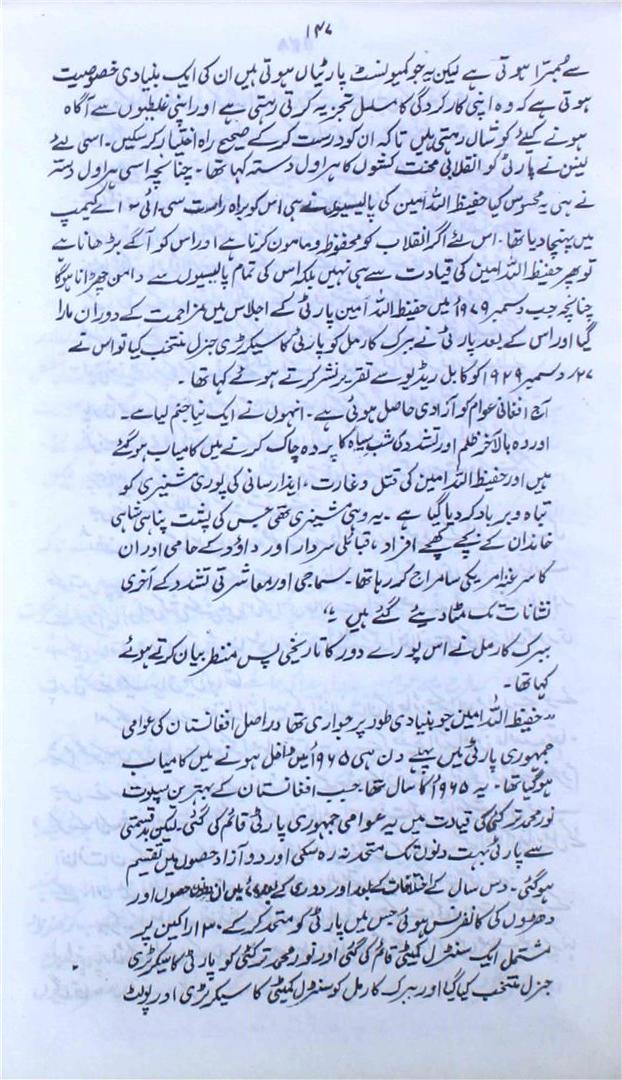 ۱۴۷
سے مُبرّا ہوتی ہے لیکن یہ جو کمیونسٹ پارٹیاں ہوتی ہیں ان کی ایک بنیادی خصوصیت
ہوتی ہے کہ وہ اپنی کارکردگی کا مسلسل تجزیہ کرتی رہتی ہے اور اپنی غلطیوں سے آگاہ
ہونے کیلئے کوشاں رہتی ہیں تاکہ ان کو درست کر کے صحیح راہ اختیار کرسکیں۔ اسی لئے
لینن نے پارٹی کو انقلابی محنت کشوں کا ہراول دستہ کہا تھا۔ چنانچہ اسی ہراول دستہ
نے ہی یہ محسوس کیا حفیظ اللہ امین کی پالیسیوں نے ہی اس کو براہ راست سی۔آئی۔اے کے کیمپ
میں پہنچا دیا تھا۔ اس لئے اگر انقلاب کو محفوظ و مامون کرنا ہے اور اس کو آگے بڑھانا ہے
تو پھر حفیظ اللہ امین کی قیادت سے ہی نہیں بلکہ اس کی تمام پالیسیوں سے دامن چھڑانا ہوگا
چنانچہ جب دسمبر ۱۹۷۹ء میں حفیظ اللہ امین پارٹی کے اجلاس میں مزاحمت کے دوران مارا
گیا اور اس کے بعد پارٹی نے ببرک کارمل کو پارٹی کا سیکرٹری جنرل منتخب کیا تو اس نے
۲۷؍ دسمبر ۱۹۲۹ء کو کابل ریڈیو سے تقریر نشر کرتے ہوئے کہا تھا۔
آج افغانی عوام کو آزادی حاصل ہوئی ہے۔ انہوں نے ایک نیا جنم لیا ہے۔
اور وہ بالآخر ظلم اور تشدد کی شب سیاہ کا پردہ چاک کرنے میں کامیاب ہوگئے
ہیں اور حفیظ اللہ امین کی قتل و غارت، ایذا رسانی کی پوری مشینری کو
تباہ و برباد کر دیا گیا ہے۔ یہ وہی مشینری تھی جس کی پشت پناہی شاہی
خاندان کے بچے کھچے افراد، قبائلی سردار اور داؤد کے حامی اور ان
کا سرغنہ امریکی سامراج کر رہا تھا۔ سماجی اور معاشرتی تشدد کے آخری
نشانات تک مٹا دیئے گئے ہیں۔"
ببرک کارمل نے اس پورے دور کا تاریخی پس منظر بیان کرتے ہوئے
کہا تھا۔
"حفیظ اللہ امین جو بنیادی طور پر حواری تھا دراصل افغانستان کی عوامی
جمہوری پارٹی میں پہلے دن ہی ۱۹۶۵ء میں داخل ہونے میں کامیاب
ہوگیا تھا۔ یہ ۱۹۶۵ء کا سال تھا۔ جب افغانستان کے بہترین سپوت
نور محمد ترکئی کی قیادت میں یہ عوامی جمہوری پارٹی قائم کی گئی۔ لیکن بدقسمتی
سے پارٹی بہت دنوں تک متحد نہ رہ سکی اور دو آزاد حصوں میں تقسیم
ہوگئی۔ دس سال کے اختلافات کے بعد اور دوری کے میں ان حصوں اور
دھڑوں کی کانفرنس ہوئی جس میں پارٹی کو متحد کر کے ۳۰ اراکین پر
مشتمل ایک سنٹرل کمیٹی قائم کی گئی اور نور محمد ترکئی کو پارٹی کا سیکرٹری
جنرل منتخب کیا گیا اور ببرک کارمل کو سنٹرل کمیٹی کا سیکرٹری اور پولٹ